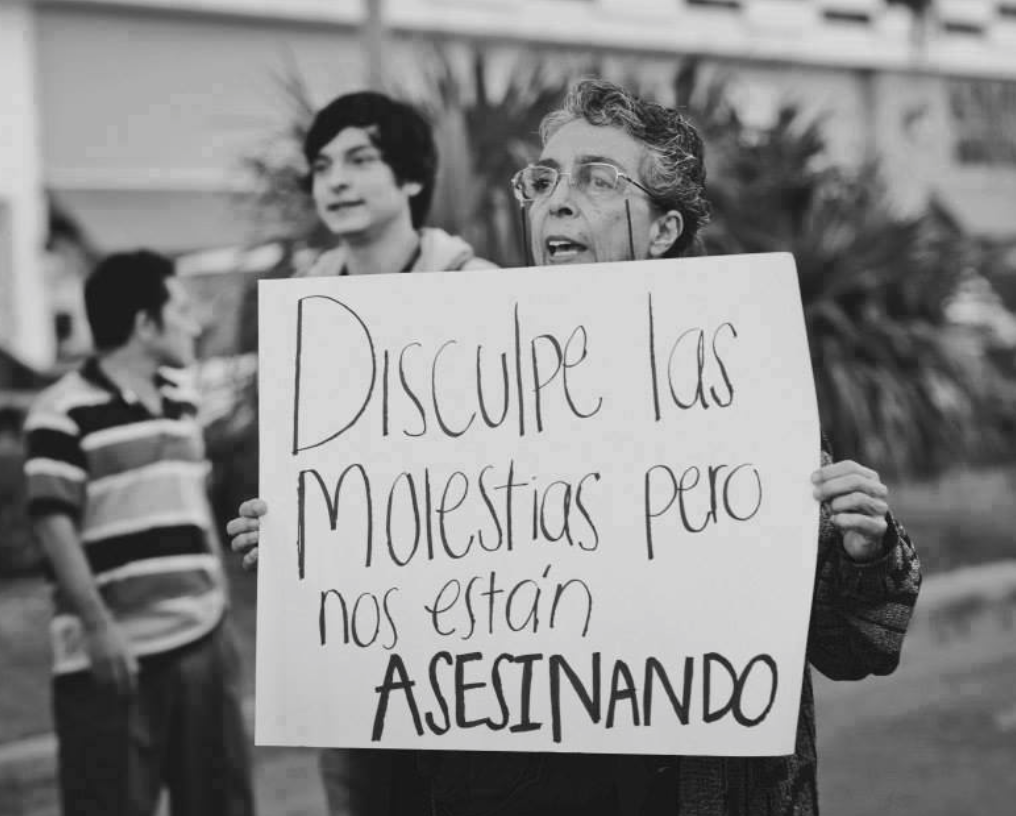 Disculpe las
Molestias pero
nos están
ASESINANDO